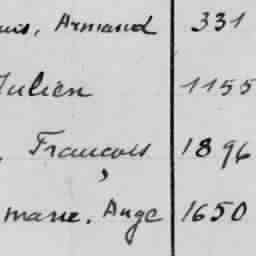 uis, Armand 331
Julien 1155
, Francois 1896
marie. Ange 1650